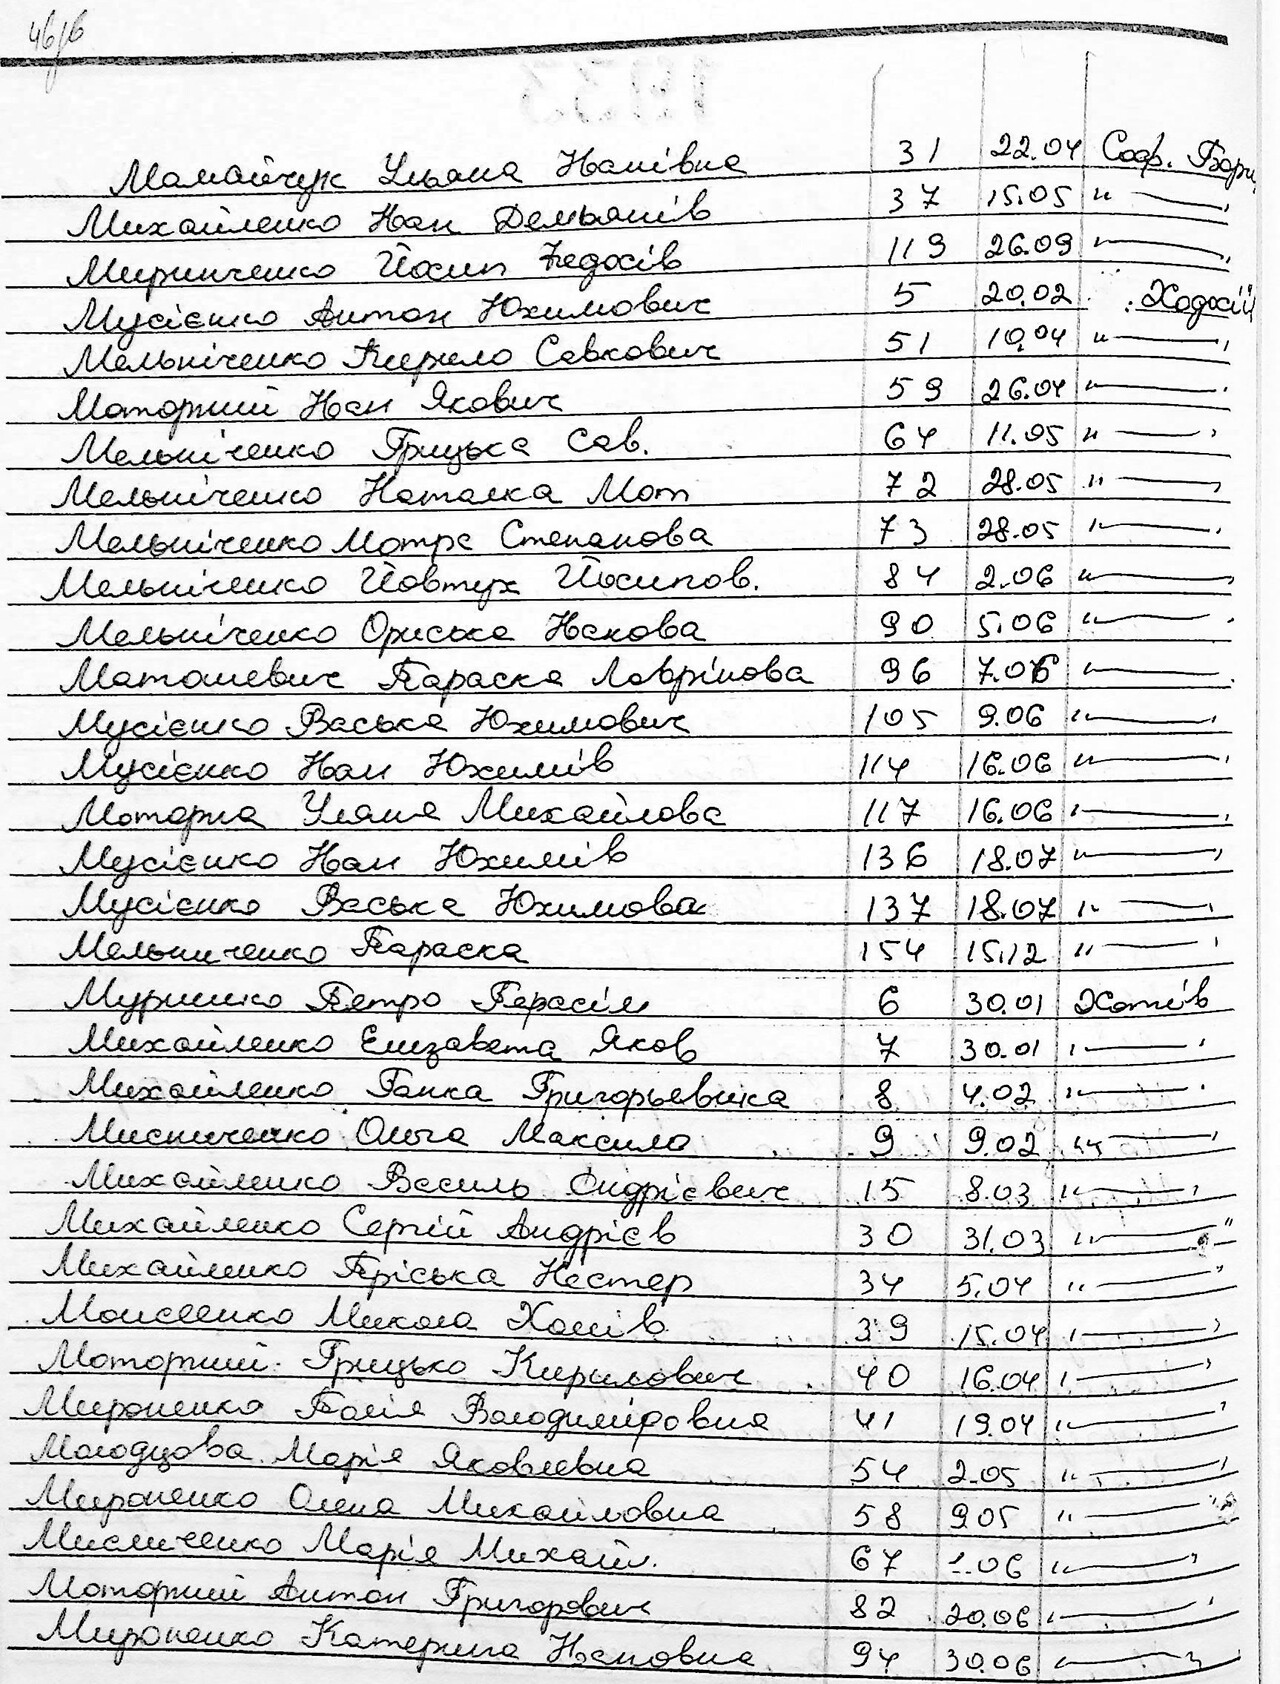 46/6
Мамайчук Уляна Нанівна 31 22.04 Соф. Борщ.
Михайленко Нан Демьянів 37 15.05 "—"
Миринченко Йосип Федосів 119 26.09 "—"
Мусієнко Антон Юхимович 5 20.02 Ходосії
Мельніченко Кирило Савкович 51 10.04 "—"
Моторний Нан Якович 59 26.04 "—"
Мельніченко Грицька Сав. 64 11.05 "—"
Мельніченко Наталка Мот 72 28.05 "—"
Мельніченко Мотрє Степанова 73 28.05 "—"
Мельніченко Йовтух Йосипов. 84 2.06 "—"
МельніченкоОриська Нанова 90 5.06 "—"
Матошевич Параска Лаврінова 96 7.06 "—"
Мусієнко Васька Юхимович 105 9.06 "—"
Мусієнко Нан Юхимів 114 16.06 "—"
Моторна Уляна Михайлова 117 16.06 "—"
Мусієнко Нан Юхимів 136 18.07 "—"
Мусієнко Васька Юхимова 137 18.07 "—"
Мельниченко Параска 154 15.12 "—"
Муринко Петро Герасім 6 30.01 Хотів
Михайленко Елизавета Яков 7 30.01 "—"
Михайленко Ганка Григорьевшка 8 4.02 "—"
Мисниченко Ольга Максимо 9 9.02 "—"
Михайленко Василь Андрієвич 15 8.03 "—"
Михайленко Сергій Андрієв 30 31.03 "—"
Михайленко Пріська Нестер 34 5.04 "—"
Моисеенко Микола Хомів 39 15.04 "—"
Моторний Грицько Кирилович 40 16.04 "—"
Мироненко Галія Володиміровна 41 19.04 "—"
Молодцова Марія Яковлевна 54 2.05 "—"
Мироненко Олена Михайловна 58 9.05 "—"
Мисниченко Марія Михайл. 67 1.06 "—"
Моторний Антон Григорович 82 20.06 "—"
Мироненко Катерина Нановна 94 30.06 "—"